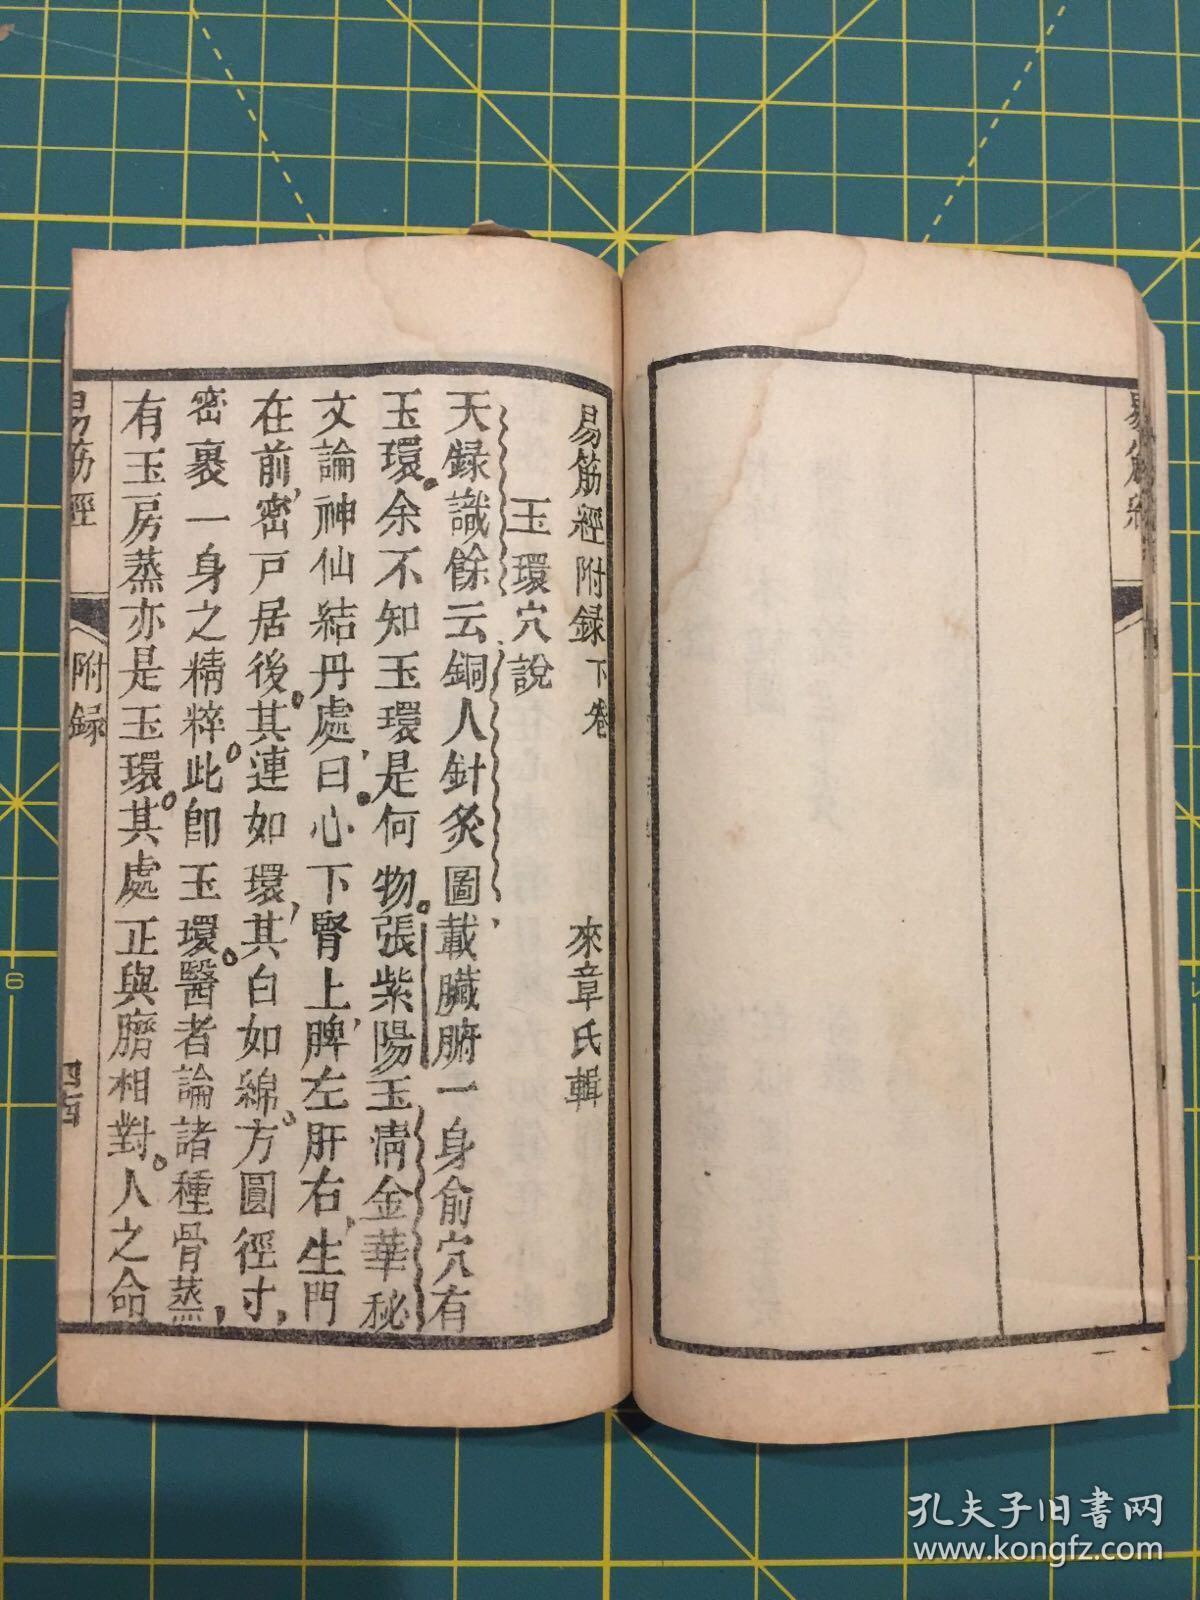 易筋經附録下卷 來章氏輯
玉環穴說
天録識餘云銅人針灸圖載臟腑一身俞穴有
玉環。余不知玉環是何物。張紫陽玉淸金華秘
文論神仙結丹處曰。心下腎上、脾左肝右、生門
在前、密戸居後。其連如環、其白如綿。方圓徑寸、
密裹一身之精粹。此即玉環。醫者論諸種骨蒸、
有玉房蒸亦是玉環。其處正與臍相對。人之命
易筋經
附録
易筋經
6
孔夫子旧書网
www.kongfz.com